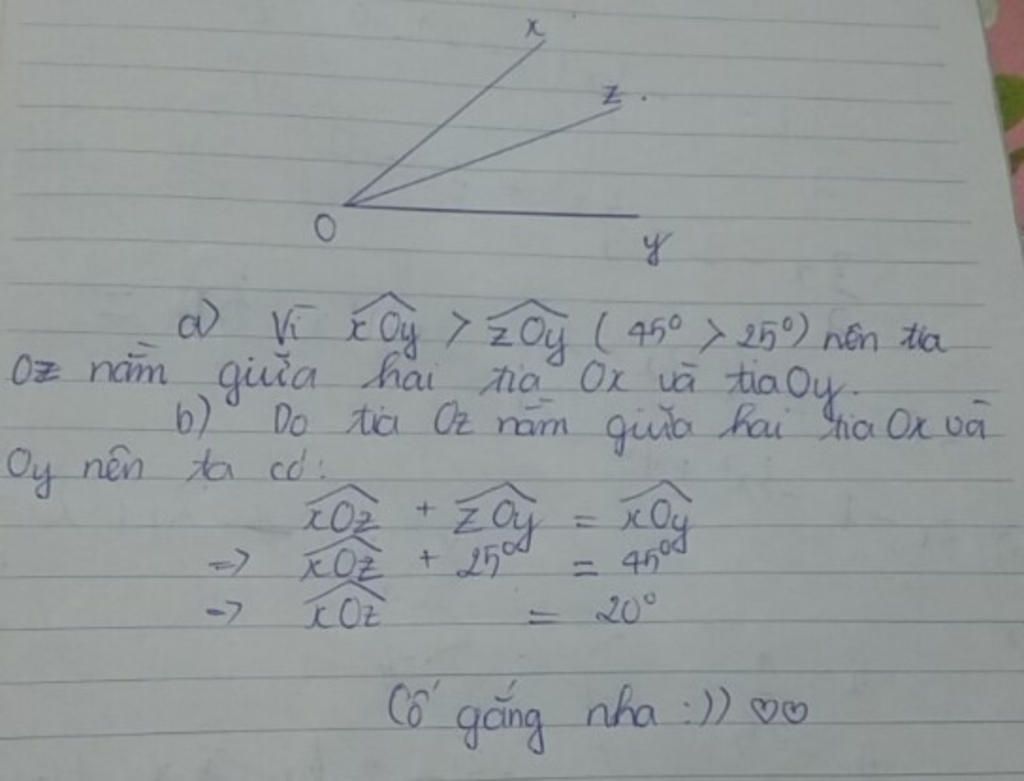 x
z
O
y
a) Vì xOy > zOy ( 45° > 25° ) nên tia
Oz nằm giữa hai tia Ox và tia Oy.
b) Do tia Oz nằm giữa hai tia Ox và
Oy nên ta có:
xOz + zOy = xOy
=> xOz + 25° = 45°
=> xOz = 20°
Cố gắng nha :)) ♡♡